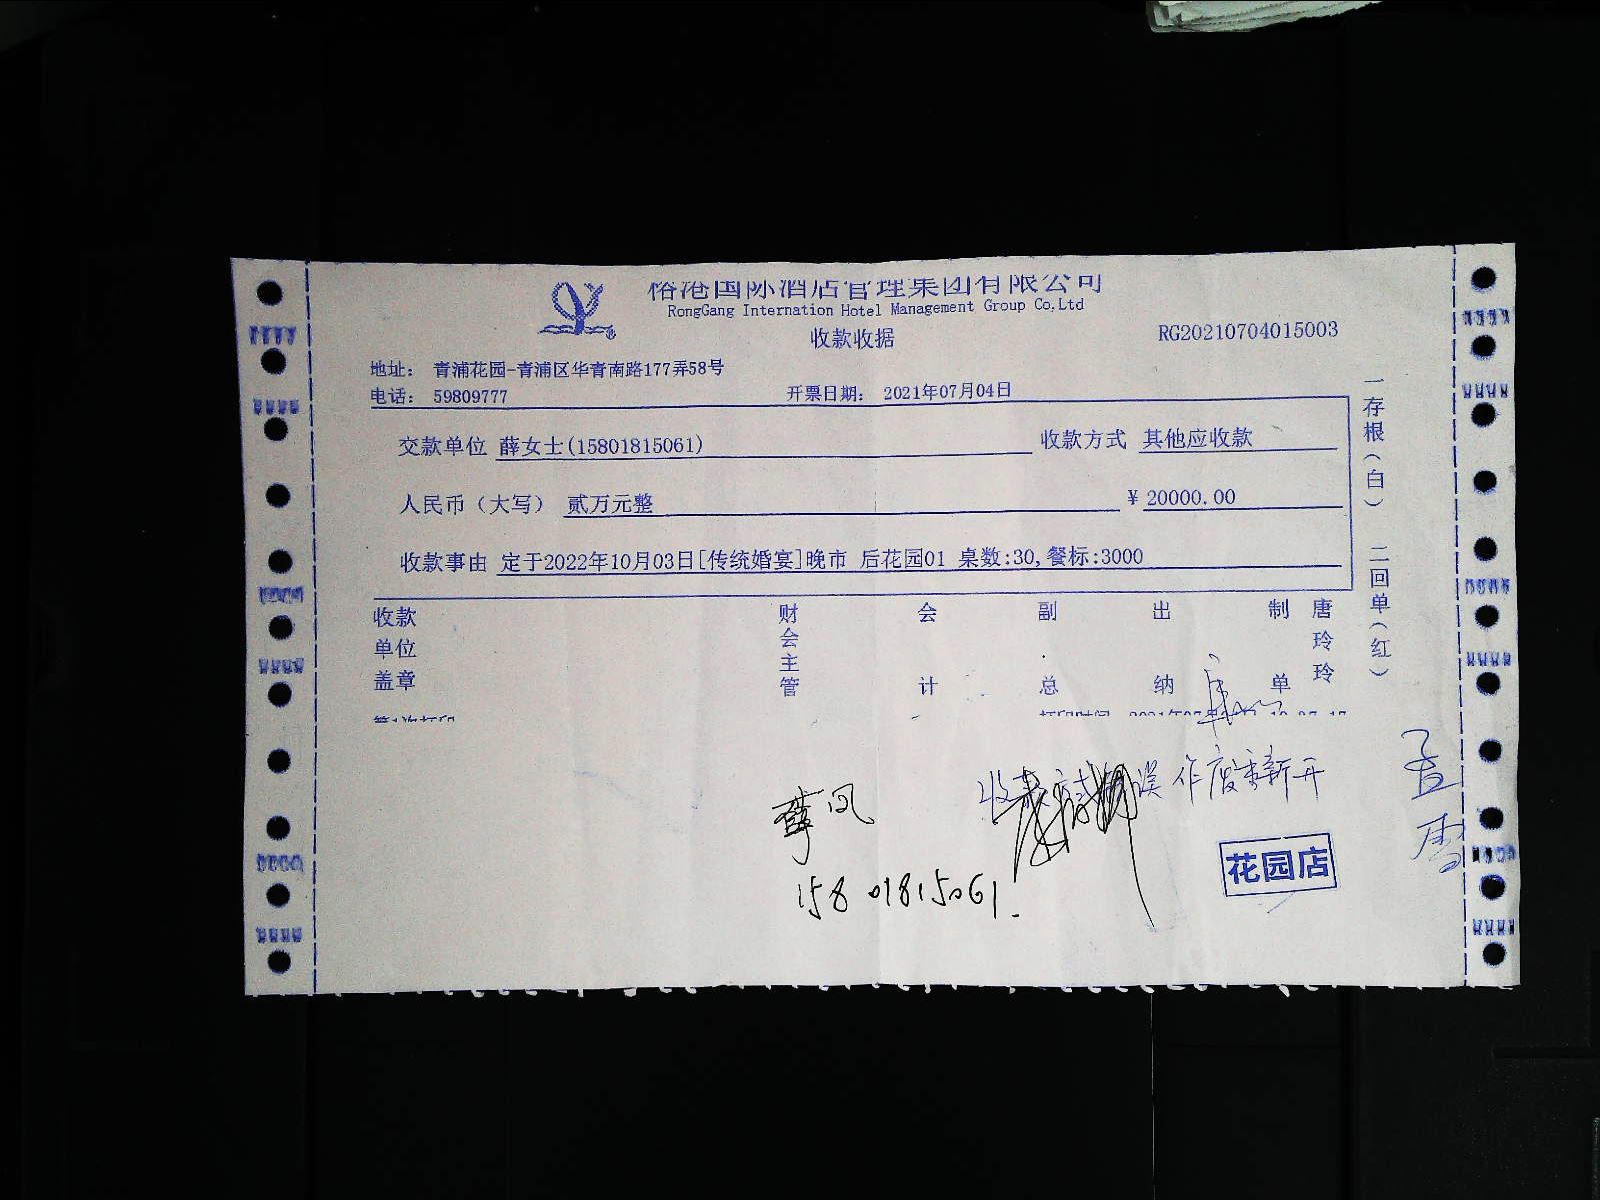 港国际酒店管理集团有限公司
RongGang Internation Hotel Management Group Co,Ltd
收款收据
RG20210704015003
地址： 青浦花园-青浦区华青南路177弄58号
电话： 59809777 开票日期： 2021年07月04日
交款单位 薛女士(15801815061) 收款方式 其他应收款
人民币（大写） 贰万元整 ¥ 20000.00
收款事由 定于2022年10月03日[传统婚宴]晚市 后花园01 桌数:30,餐标:3000
收款单位盖章 财会主管 会计 副总 出纳 制单 唐玲玲
一存根（白） 二回单（红）
打印时间
收款方式 误 作废重新开
薛凤
15801815061.
花园店